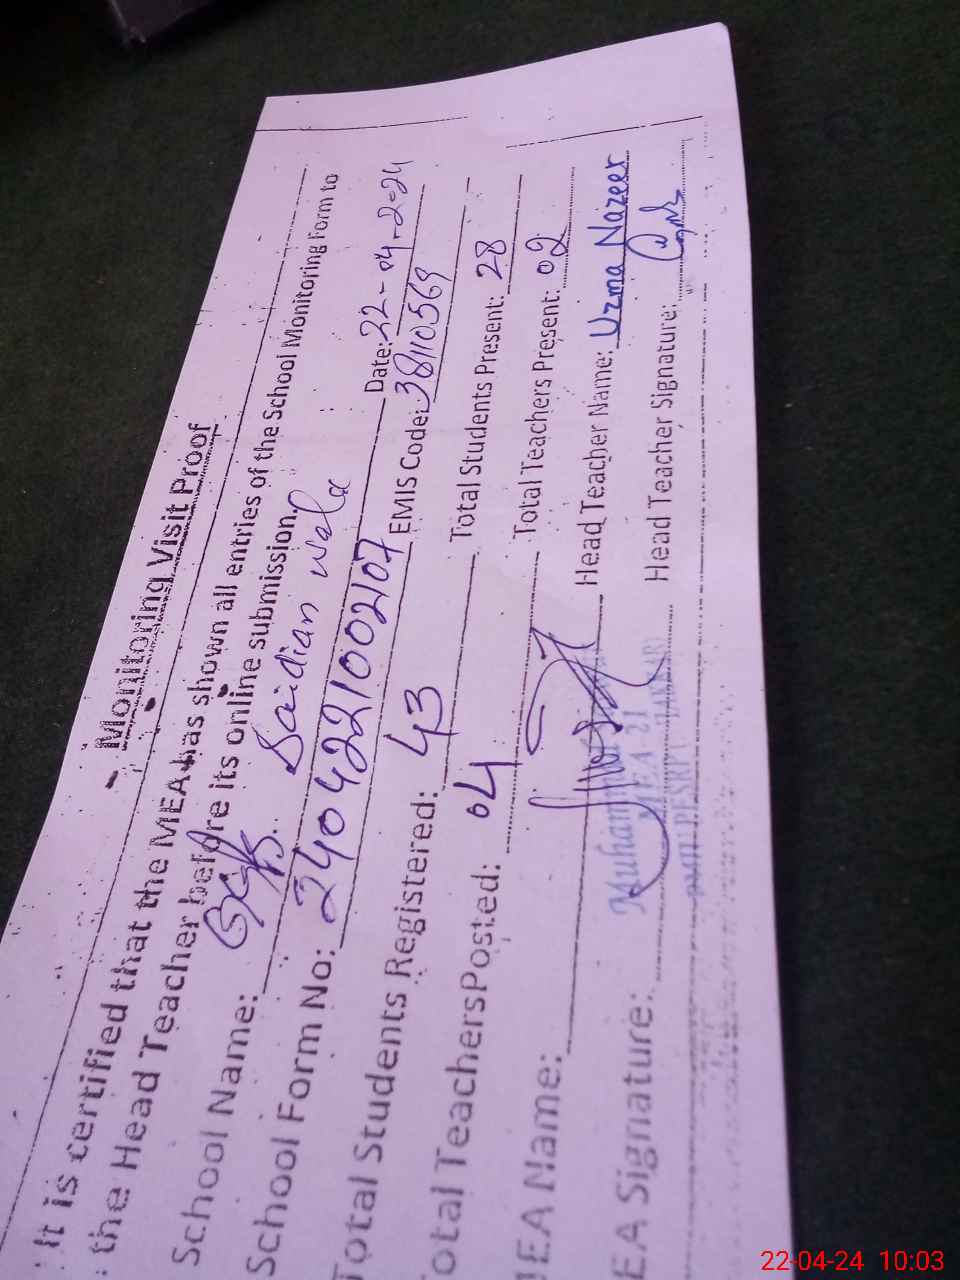 Monitoring Visit Proof
It is certified that the MEA has shown all entries of the School Monitoring Form to
the Head Teacher before its online submission.
School Name: GGPS. Saidian wala Date: 22-04-2024
School Form No: 2404221002107 EMIS Code: 38110569
Total Students Registered: 43 Total Students Present: 28
otal TeachersPosted: 04 Total Teachers Present: 02
IEA Name: Head Teacher Name: Uzma Nazeer
EA Signature: Head Teacher Signature:
Muhammad
MEA 21
22-04-24 10:03